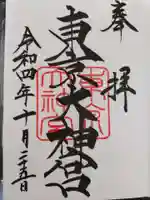 奉拝
東京大神宮
令和四年十月二十五日